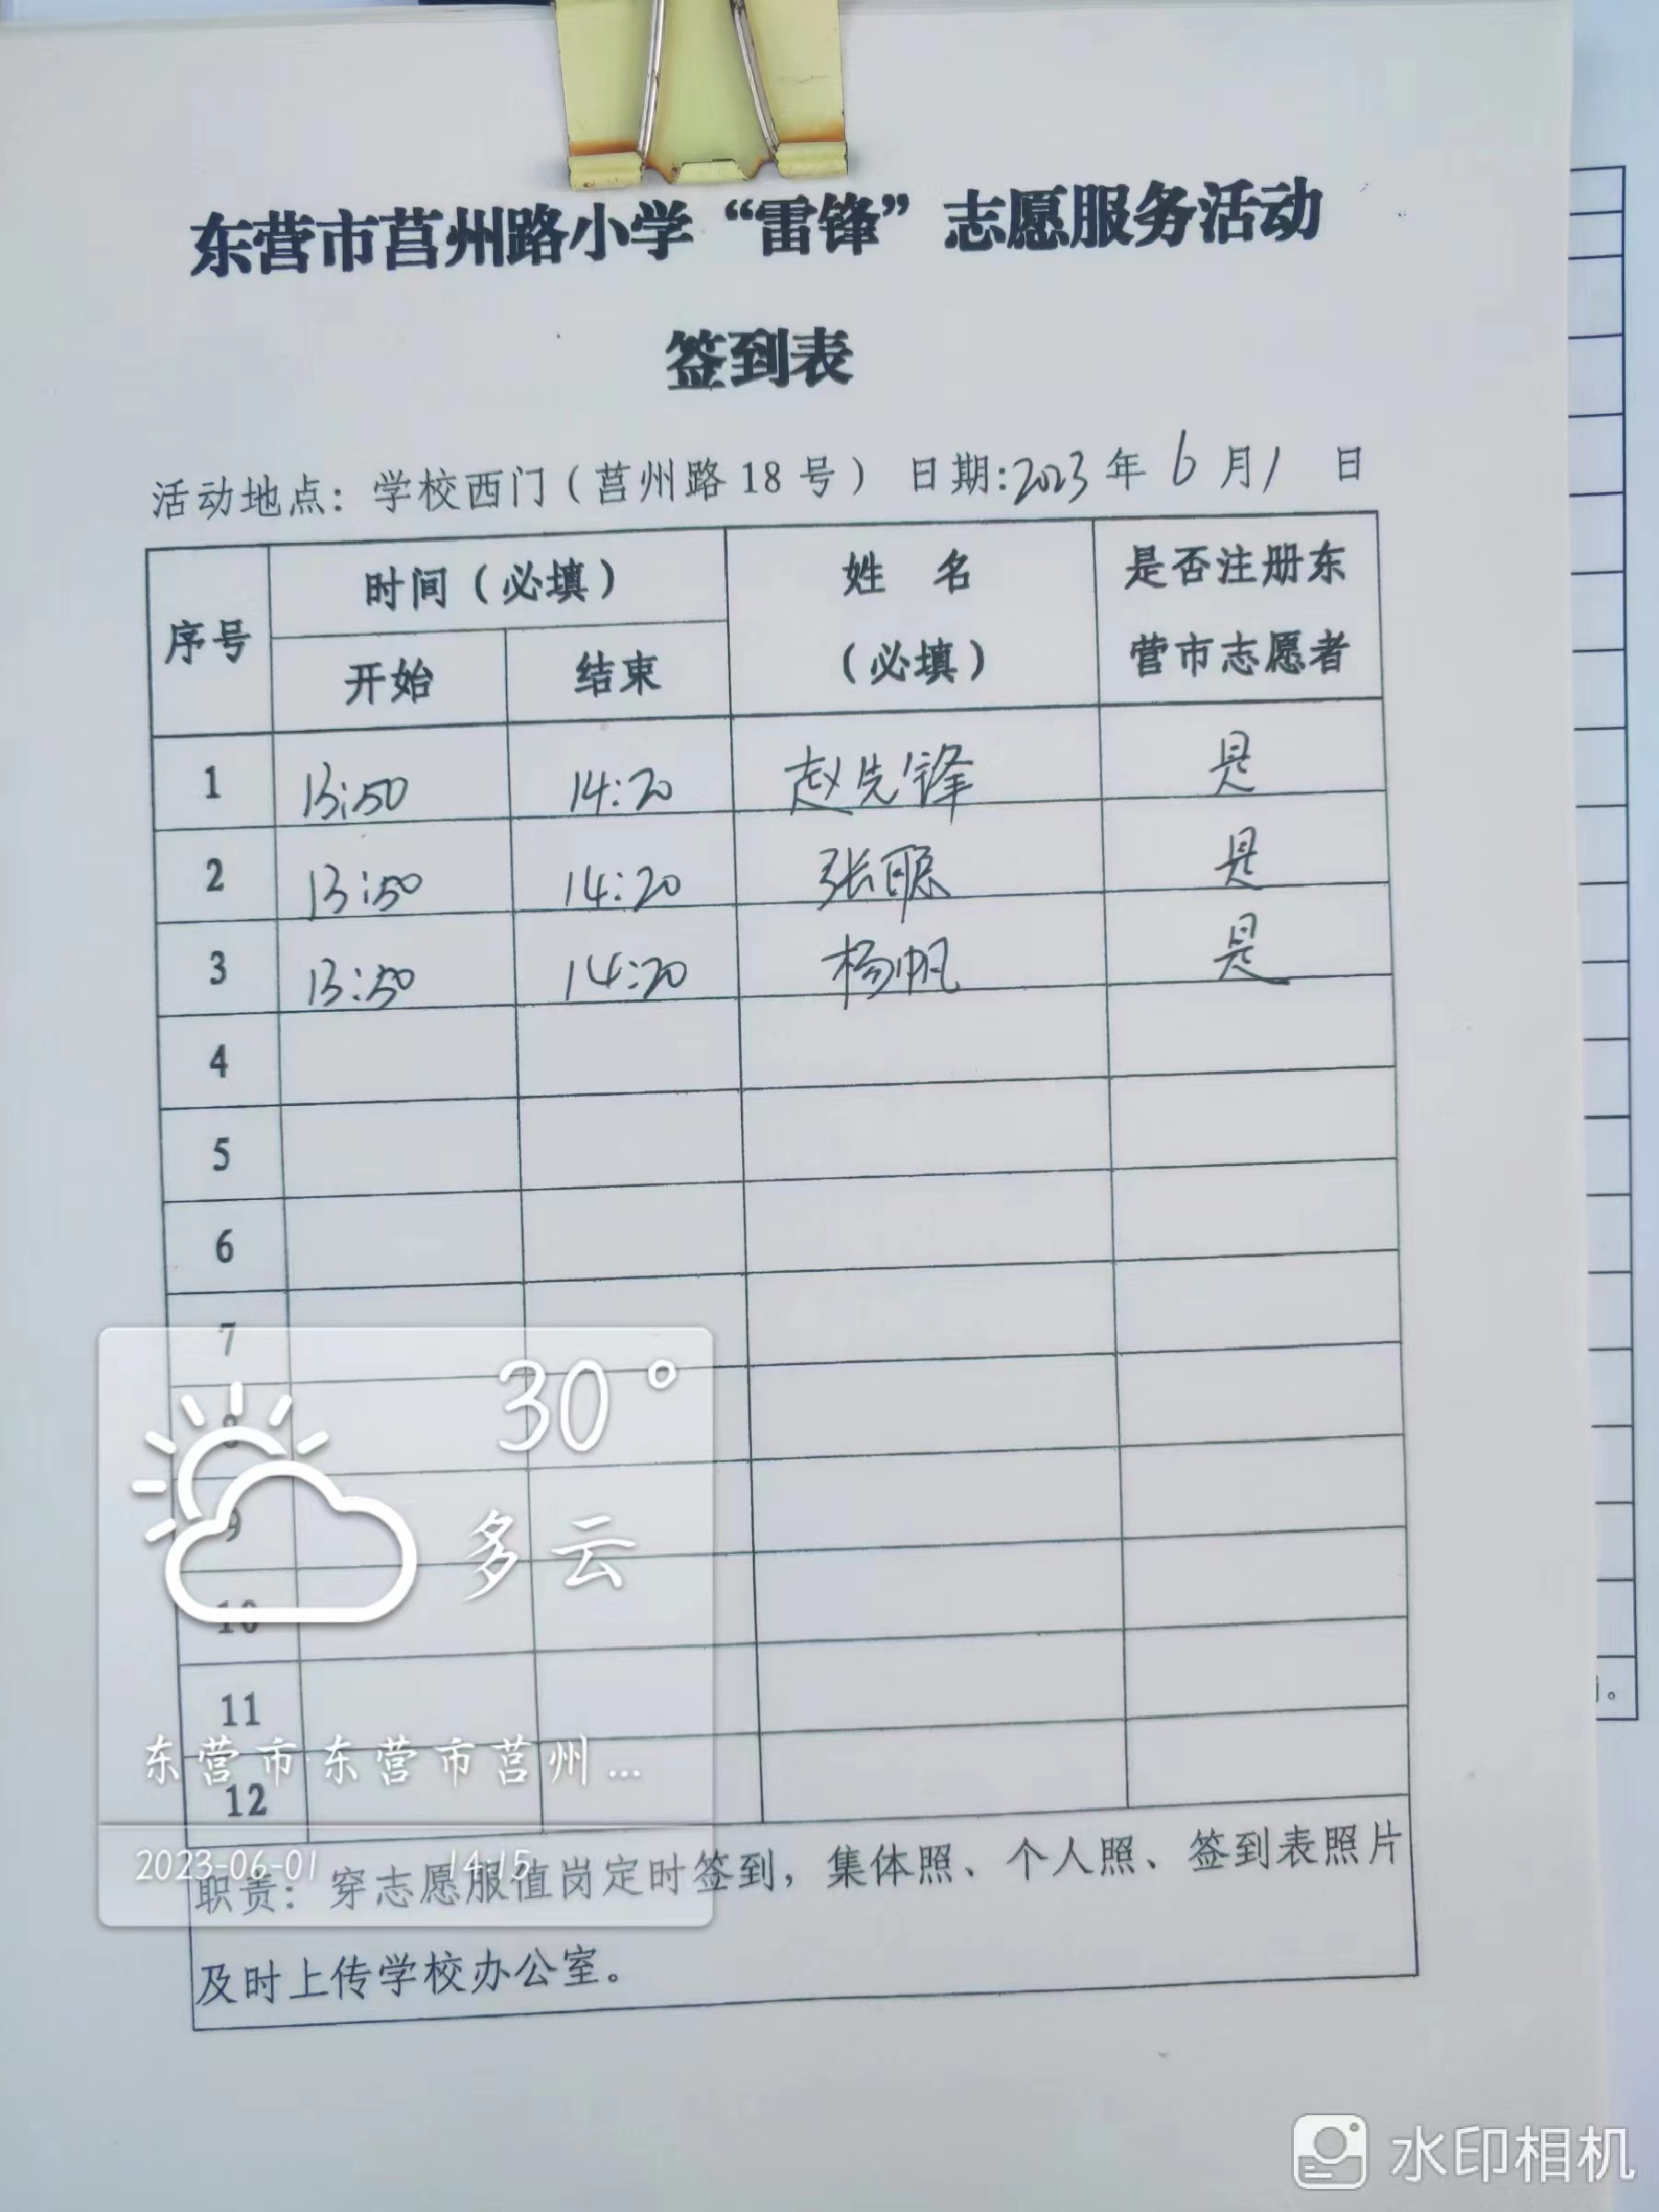 东营市莒州路小学“雷锋”志愿服务活动
签到表
活动地点：学校西门（莒州路18号） 日期:2023年6月1日
序号 时间（必填） 姓 名（必填） 是否注册东营市志愿者
开始 结束
1 13:50 14:20 赵先锋 是
2 13:50 14:20 张 是
3 13:50 14:20 杨帆 是
4
5
6
7
8
9
10
11
12
职责：穿志愿服值岗定时签到，集体照、个人照、签到表照片
及时上传学校办公室。
30°
多云
东营市·东营市莒州...
2023-06-01 14:15
水印相机